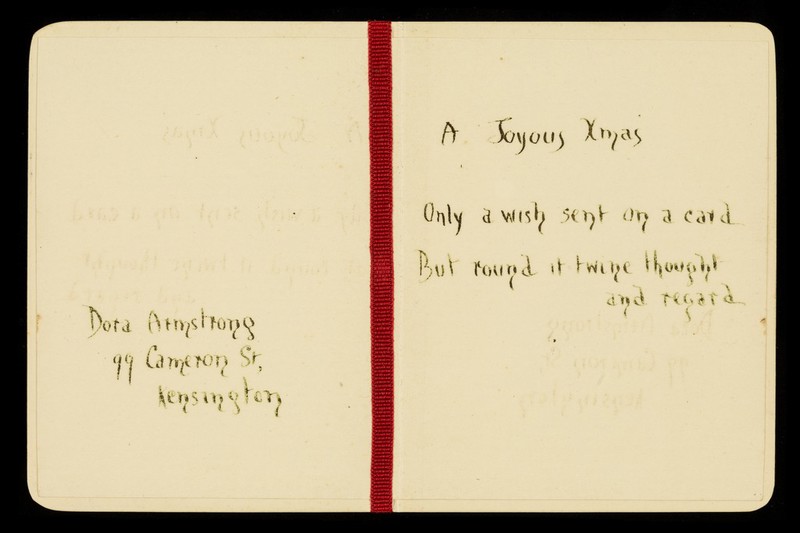 Dora Armstrong
99 Cameron St,
Kensington
A Joyous Xmas
Only a wish sent on a card
But round it twine thought
and regard